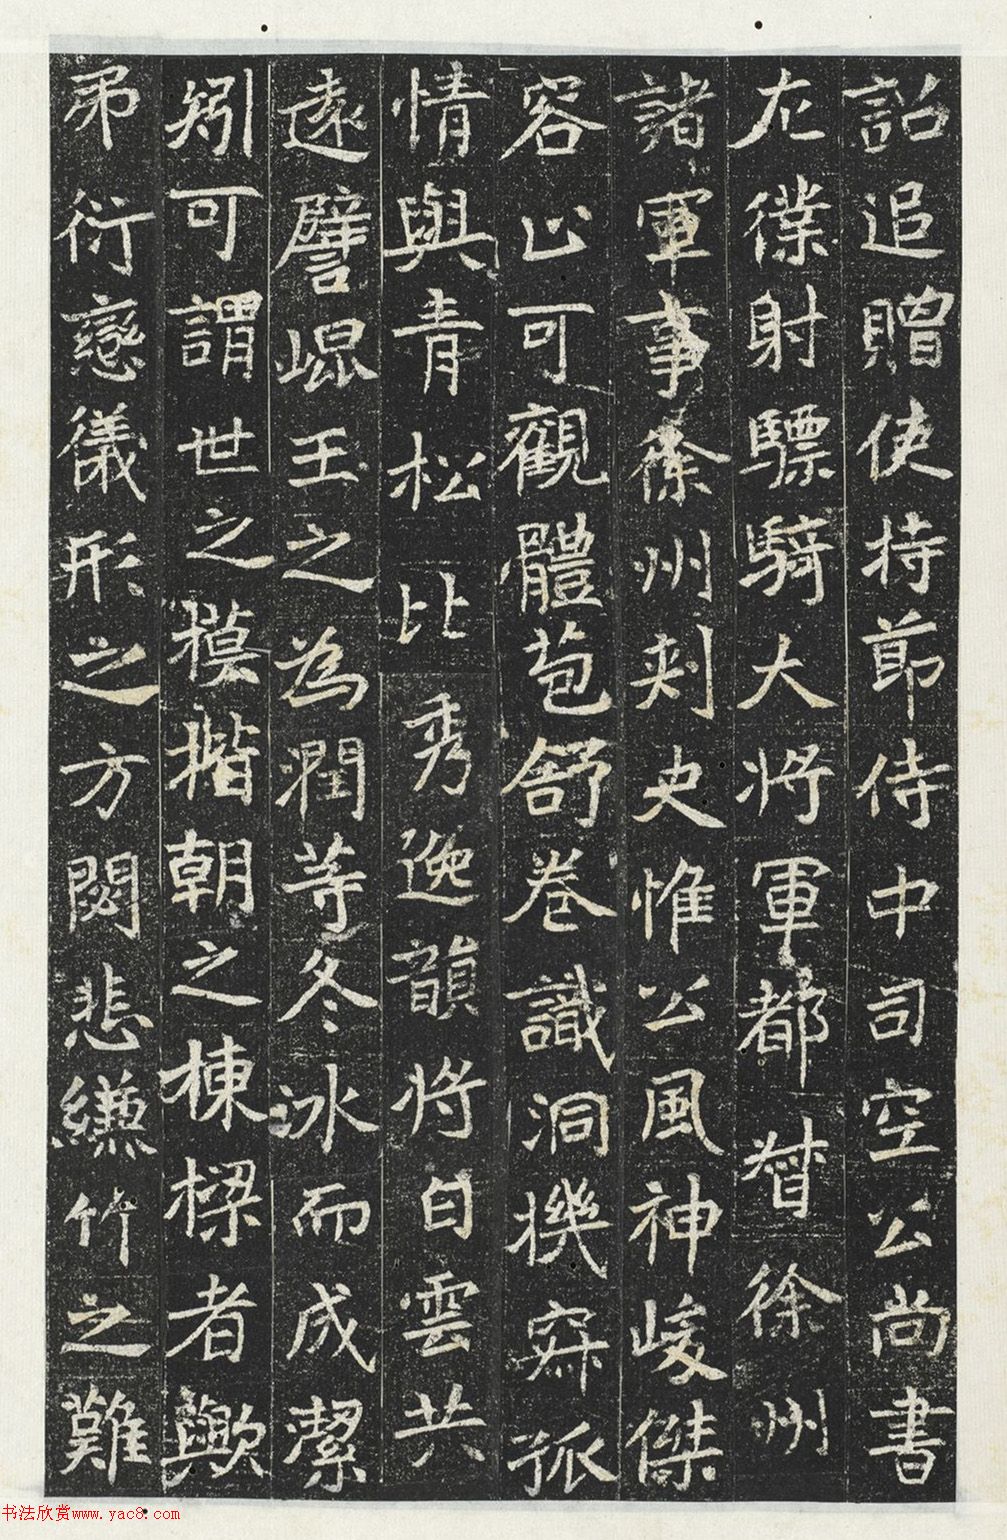 詔追贈使持節侍中司空公尚書
左僕射驃騎大將軍都督徐州
諸軍事徐州刾史惟公風神峻傑
容止可觀體苞舒卷識洞機寀孤
情與青松比秀逸韻將白雲共
遠譬崐玉之為潤等冬冰而成潔
矧可謂世之模揩朝之棟樑者歟
弟衍戀儀形之方閟悲縑竹之難
书法欣赏www.yac8.com